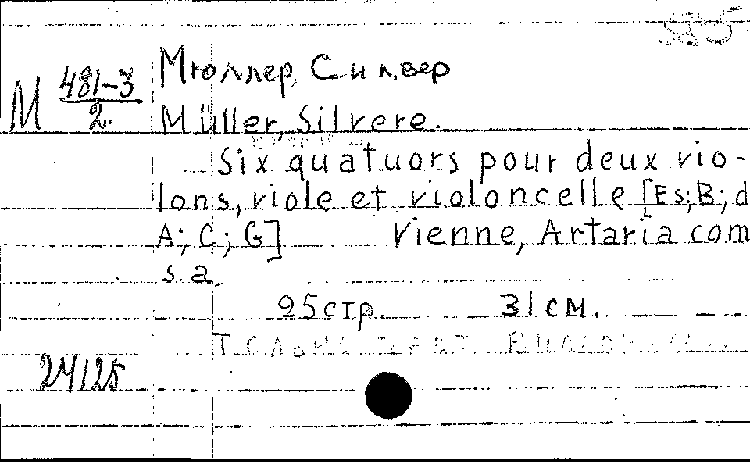 М 481-3
2.
Мюллер, Сильвер
Müller, Silvere.
Six quatuors pour deux vio-
lons, viole et violoncelle [Es; B; d
A; C; G] Vienne, Artaria com
s.a.
25 стр. 31 см.
24125